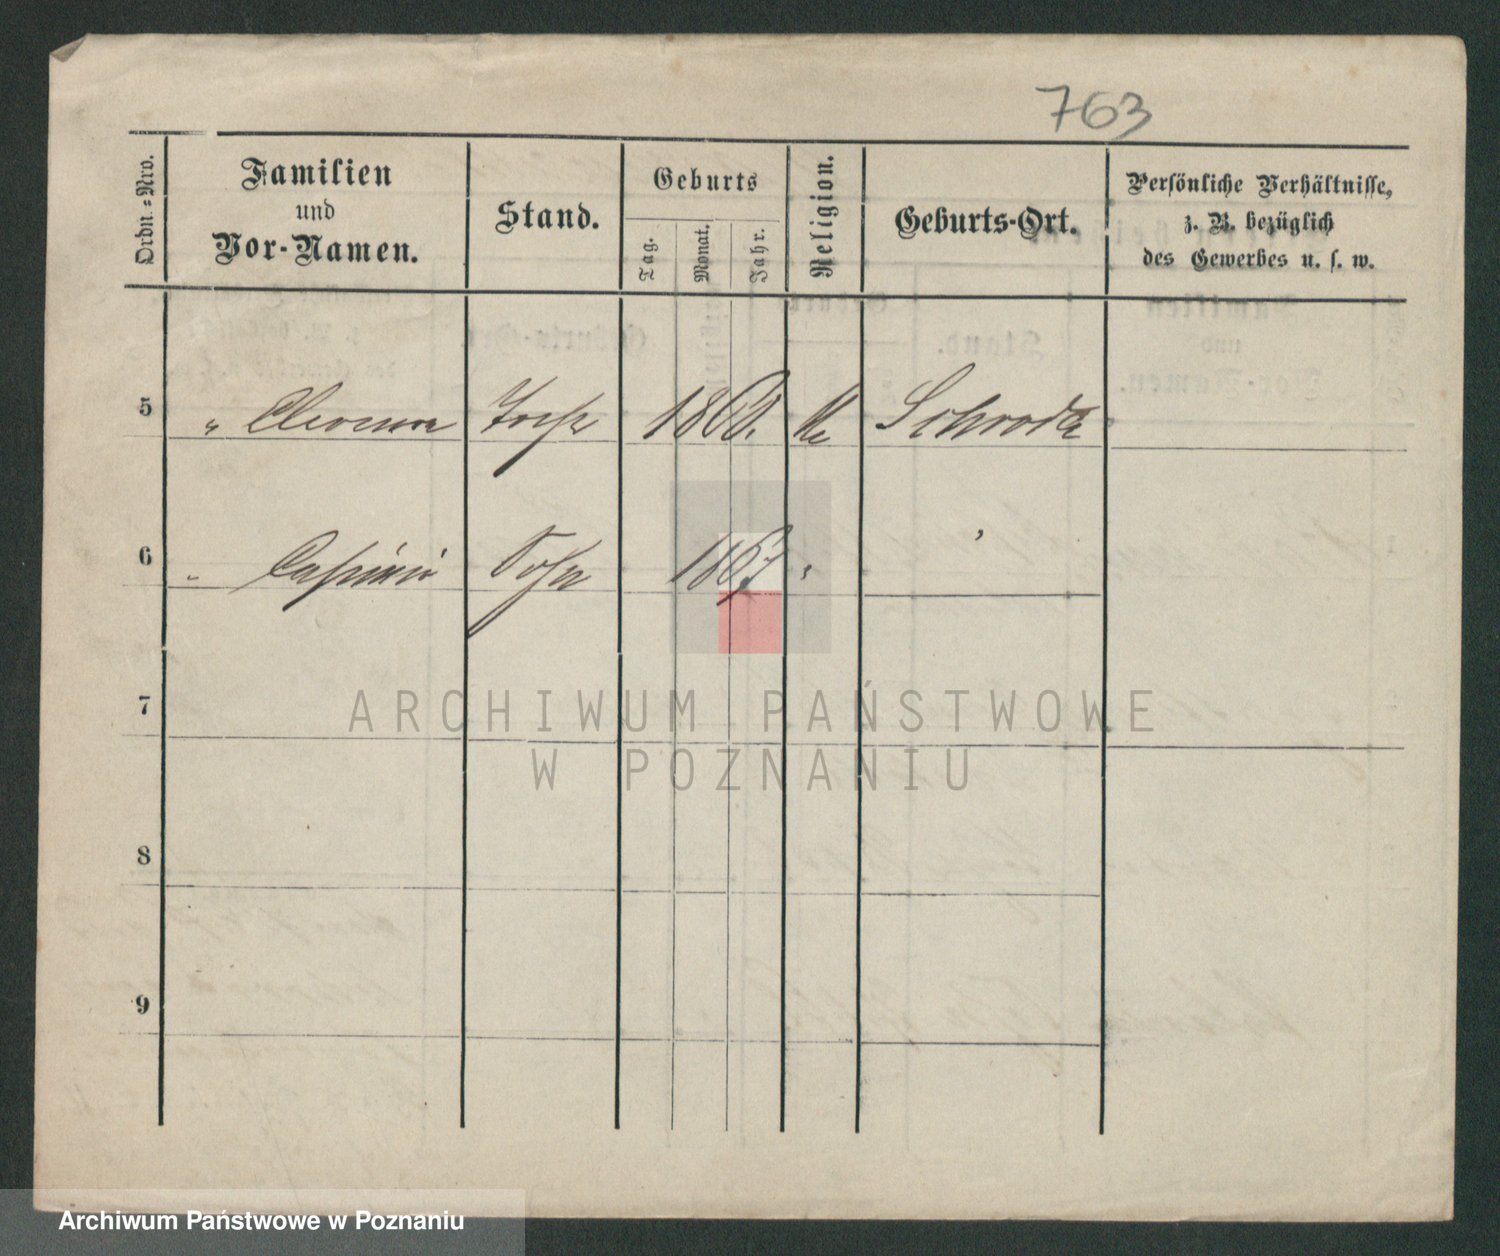 763
Ordn.-Nro.
Familien
und
Vor-Namen.
Stand.
Geburts
Tag.
Monat.
Jahr.
Religion.
Geburts-Ort.
Persönliche Verhältnisse,
z. B. bezüglich
des Gewerbes u. s. w.
5 " 1860. Schroda
6 " Casimir Sohn 1867 "
7
8
9
ARCHIWUM PAŃSTWOWE
W POZNANIU
Archiwum Państwowe w Poznaniu